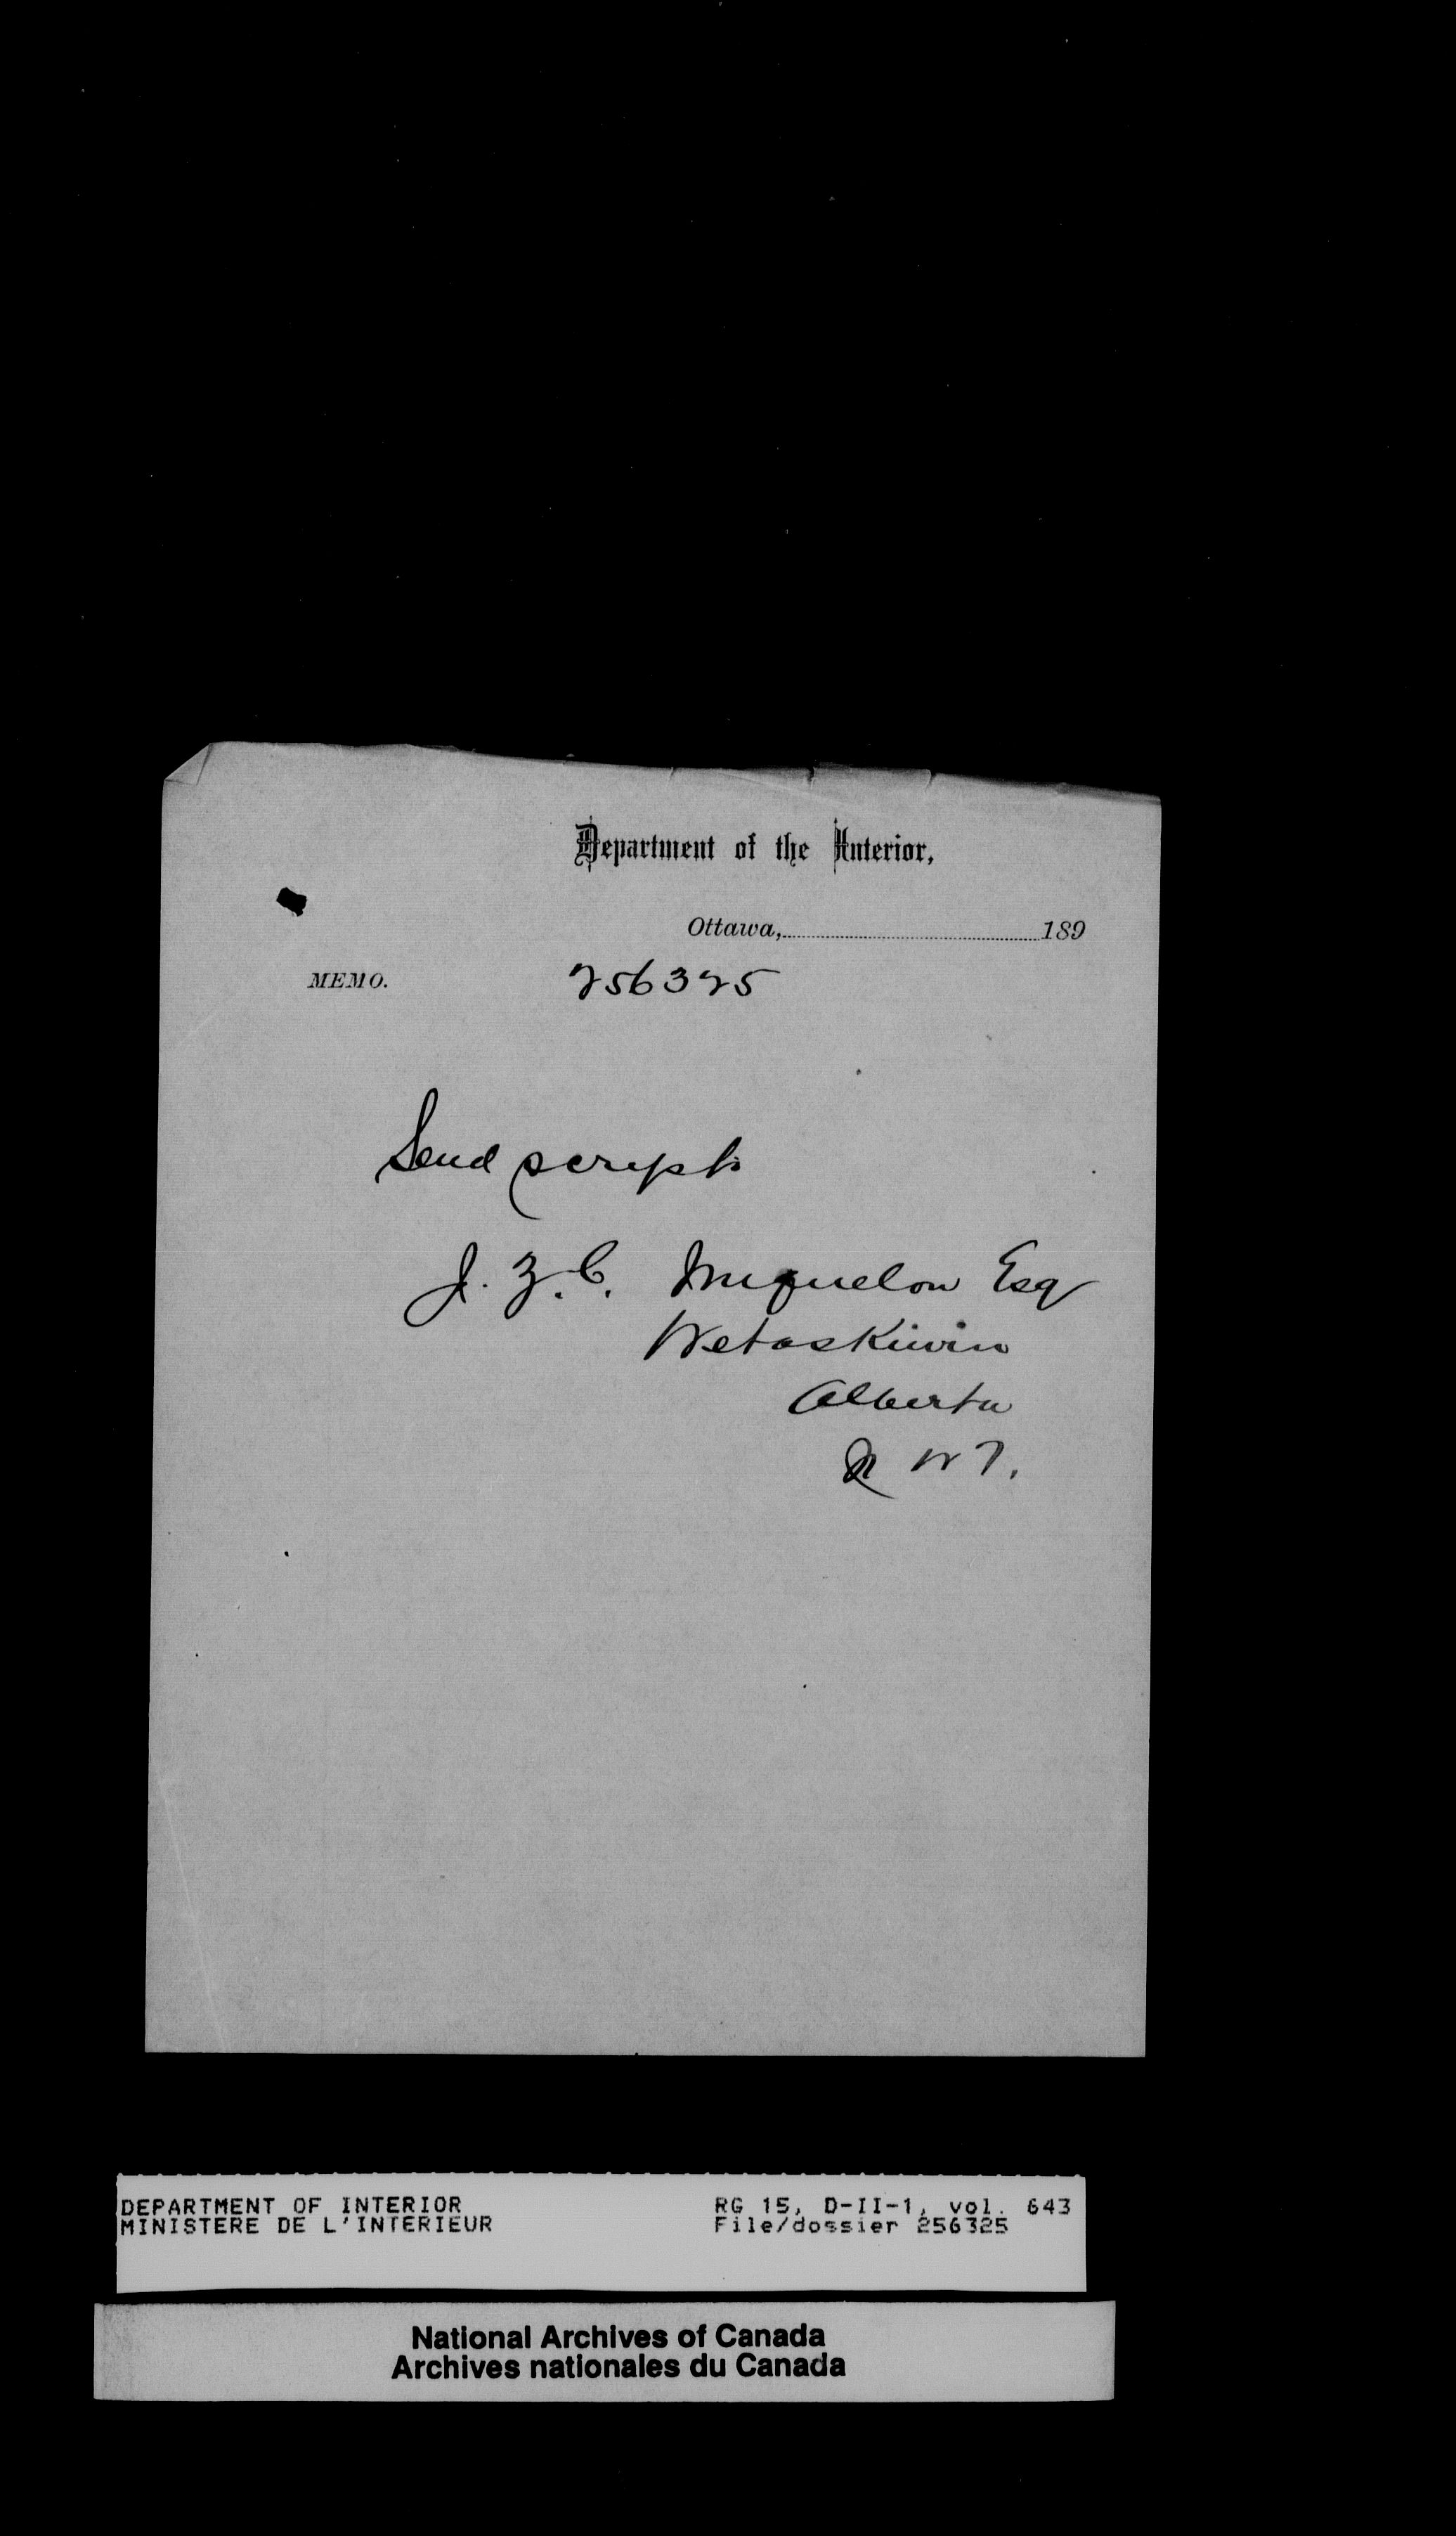 Department of the Interior,
Ottawa, 189
MEMO. 256325
Send script
J. Z. C. Miquelon Esq
Wetaskiwin
Alberta
N W T.
DEPARTMENT OF INTERIOR RG 15, D-II-1, vol. 643
MINISTERE DE L'INTERIEUR File/dossier 256325
National Archives of Canada
Archives nationales du Canada